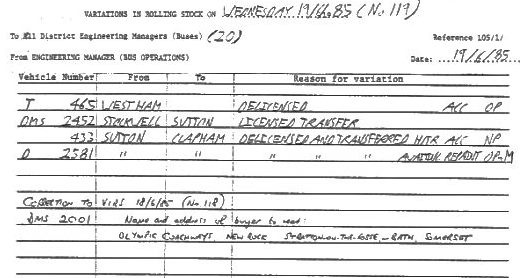 VARIATIONS IN ROLLING STOCK ON WEDNESDAY 19/6/85 (No 119)
To All District Engineering Managers (Buses) (20) Reference 105/1/
From ENGINEERING MANAGER (BUS OPERATIONS) Date: 19/6/85
Vehicle Number From To Reason for variation
T 465 WEST HAM DELICENSED ACC OP
DMS 2452 STOCKWELL SUTTON LICENSED TRANSFER
433 SUTTON CLAPHAM DELICENSED AND TRANSFERRED HITR ACC NP
D 2581 " " " " " AWAITING REPAINT OP-M
CORRECTION TO VIRS 18/6/85 (No 118)
DMS 2001 Name and address of buyer to read:
OLYMPIC COACHWAYS, NEW ROCK STRATTON-ON-THE-FOSSE, BATH, SOMERSET